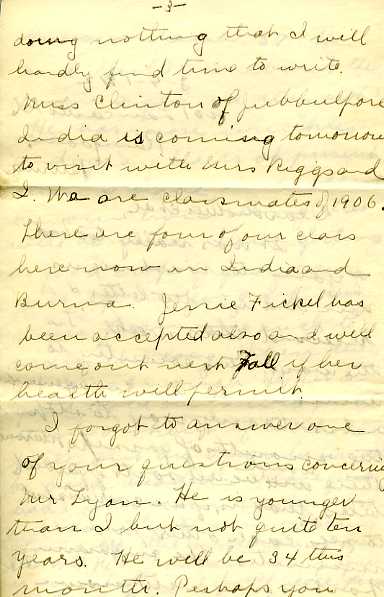 -3-
doing nothing that I will
hardly find time to write.
Miss Clinton of Jubbulpore
India is coming tomorrow
to visit with Mrs Riggs and
I. We are classmates of 1906.
There are four of our class
here now in India and
Burma. Jennie Fickel has
been accepted also and will
come out next Fall if her
health will permit.
I forgot to answer one
of your questions concering
Mr. Lyon. He is younger
than I but not quite ten
years. He will be 34 this
month. Perhaps you